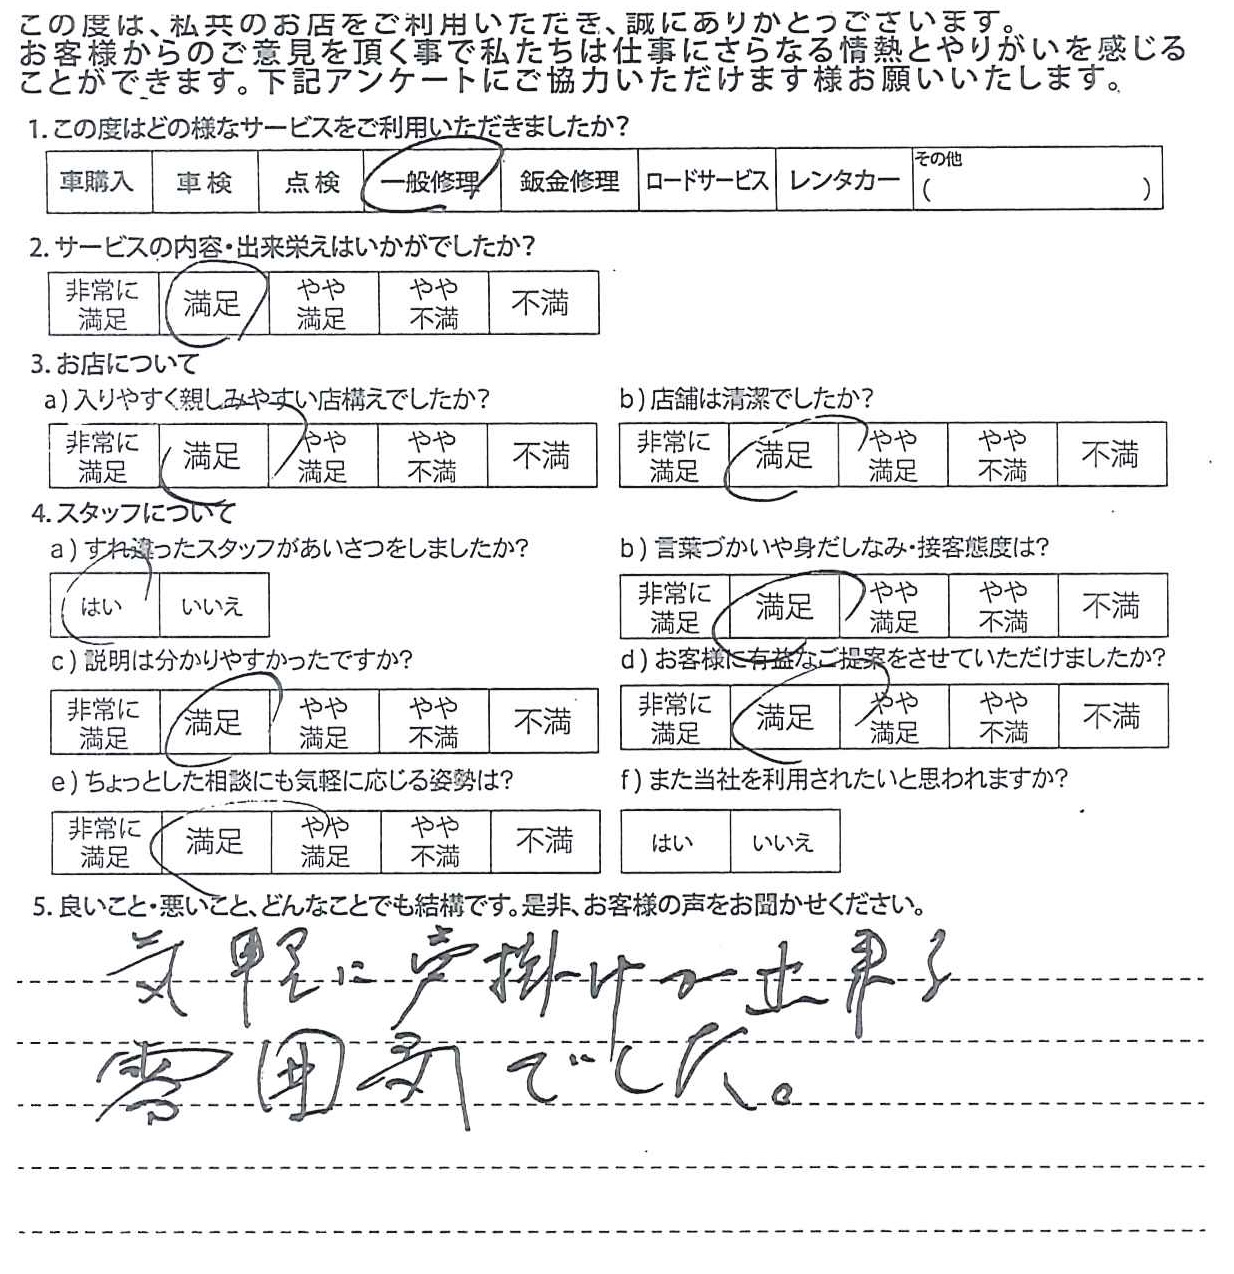 この度は、私共のお店をご利用いただき、誠にありがとうございます。
お客様からのご意見を頂く事で私たちは仕事にさらなる情熱とやりがいを感じる
ことができます。下記アンケートにご協力いただけます様お願いいたします。
1.この度はどの様なサービスをご利用いただきましたか?
車購入 車検 点検 一般修理 鈑金修理 ロードサービス レンタカー その他( )
2.サービスの内容・出来栄えはいかがでしたか?
非常に満足 満足 やや満足 やや不満 不満
3.お店について
a)入りやすく親しみやすい店構えでしたか? b)店舗は清潔でしたか?
非常に満足 満足 やや満足 やや不満 不満 非常に満足 満足 やや満足 やや不満 不満
4.スタッフについて
a)すれ違ったスタッフがあいさつをしましたか? b)言葉づかいや身だしなみ・接客態度は?
はい いいえ 非常に満足 満足 やや満足 やや不満 不満
c)説明は分かりやすかったですか? d)お客様に有益なご提案をさせていただけましたか?
非常に満足 満足 やや満足 やや不満 不満 非常に満足 満足 やや満足 やや不満 不満
e)ちょっとした相談にも気軽に応じる姿勢は? f)また当社を利用されたいと思われますか?
非常に満足 満足 やや満足 やや不満 不満 はい いいえ
5.良いこと・悪いこと、どんなことでも結構です。是非、お客様の声をお聞かせください。
気軽に声掛けが出来る
雰囲気でした。